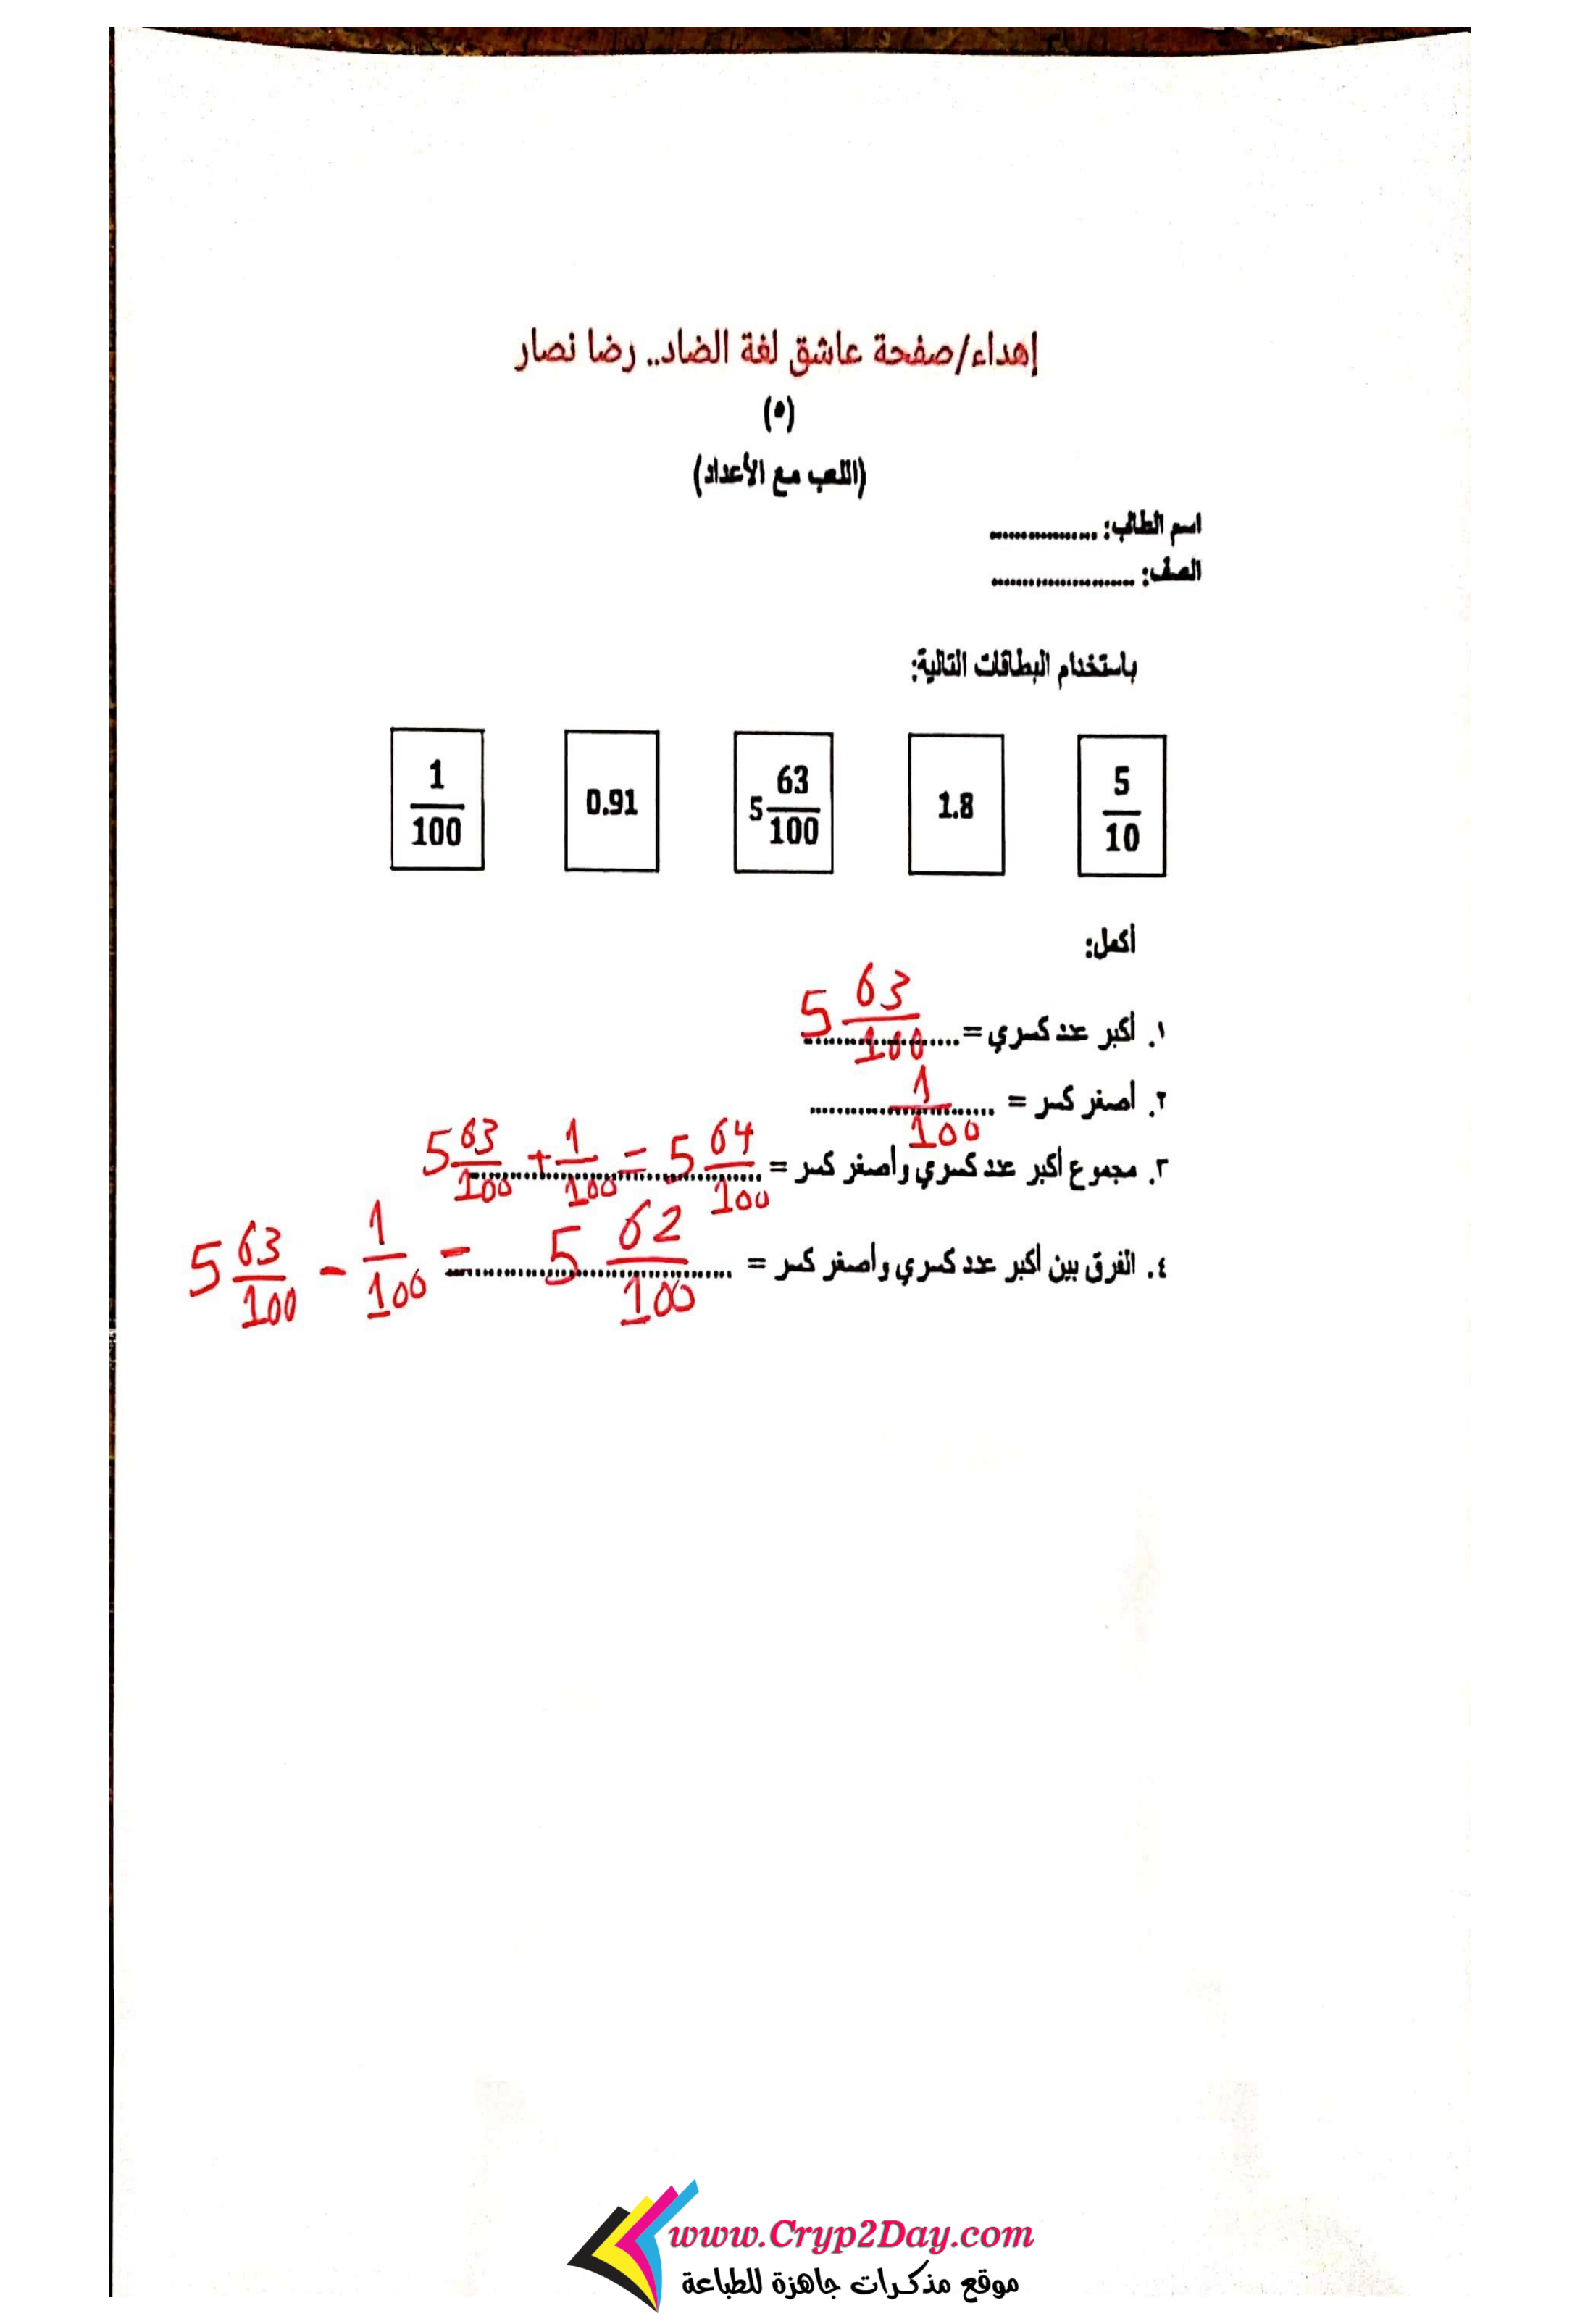 إهداء/صفحة عاشق لغة الضاد.. رضا نصار
(٥)
(اللعب مع الأعداد)
اسم الطالب: ..................
الصف: ........................
باستخدام البطاقات التالية:
5/10  1.8  5 63/100  0.91  1/100
أكمل:
١. أكبر عدد كسري = 5 63/100
٢. أصغر كسر = 1/100
٣. مجموع أكبر عدد كسري وأصغر كسر = 5 63/100 + 1/100 = 5 64/100
٤. الفرق بين أكبر عدد كسري وأصغر كسر = 5 63/100 - 1/100 = 5 62/100
www.Cryp2Day.com
موقع مذكرات جاهزة للطباعة